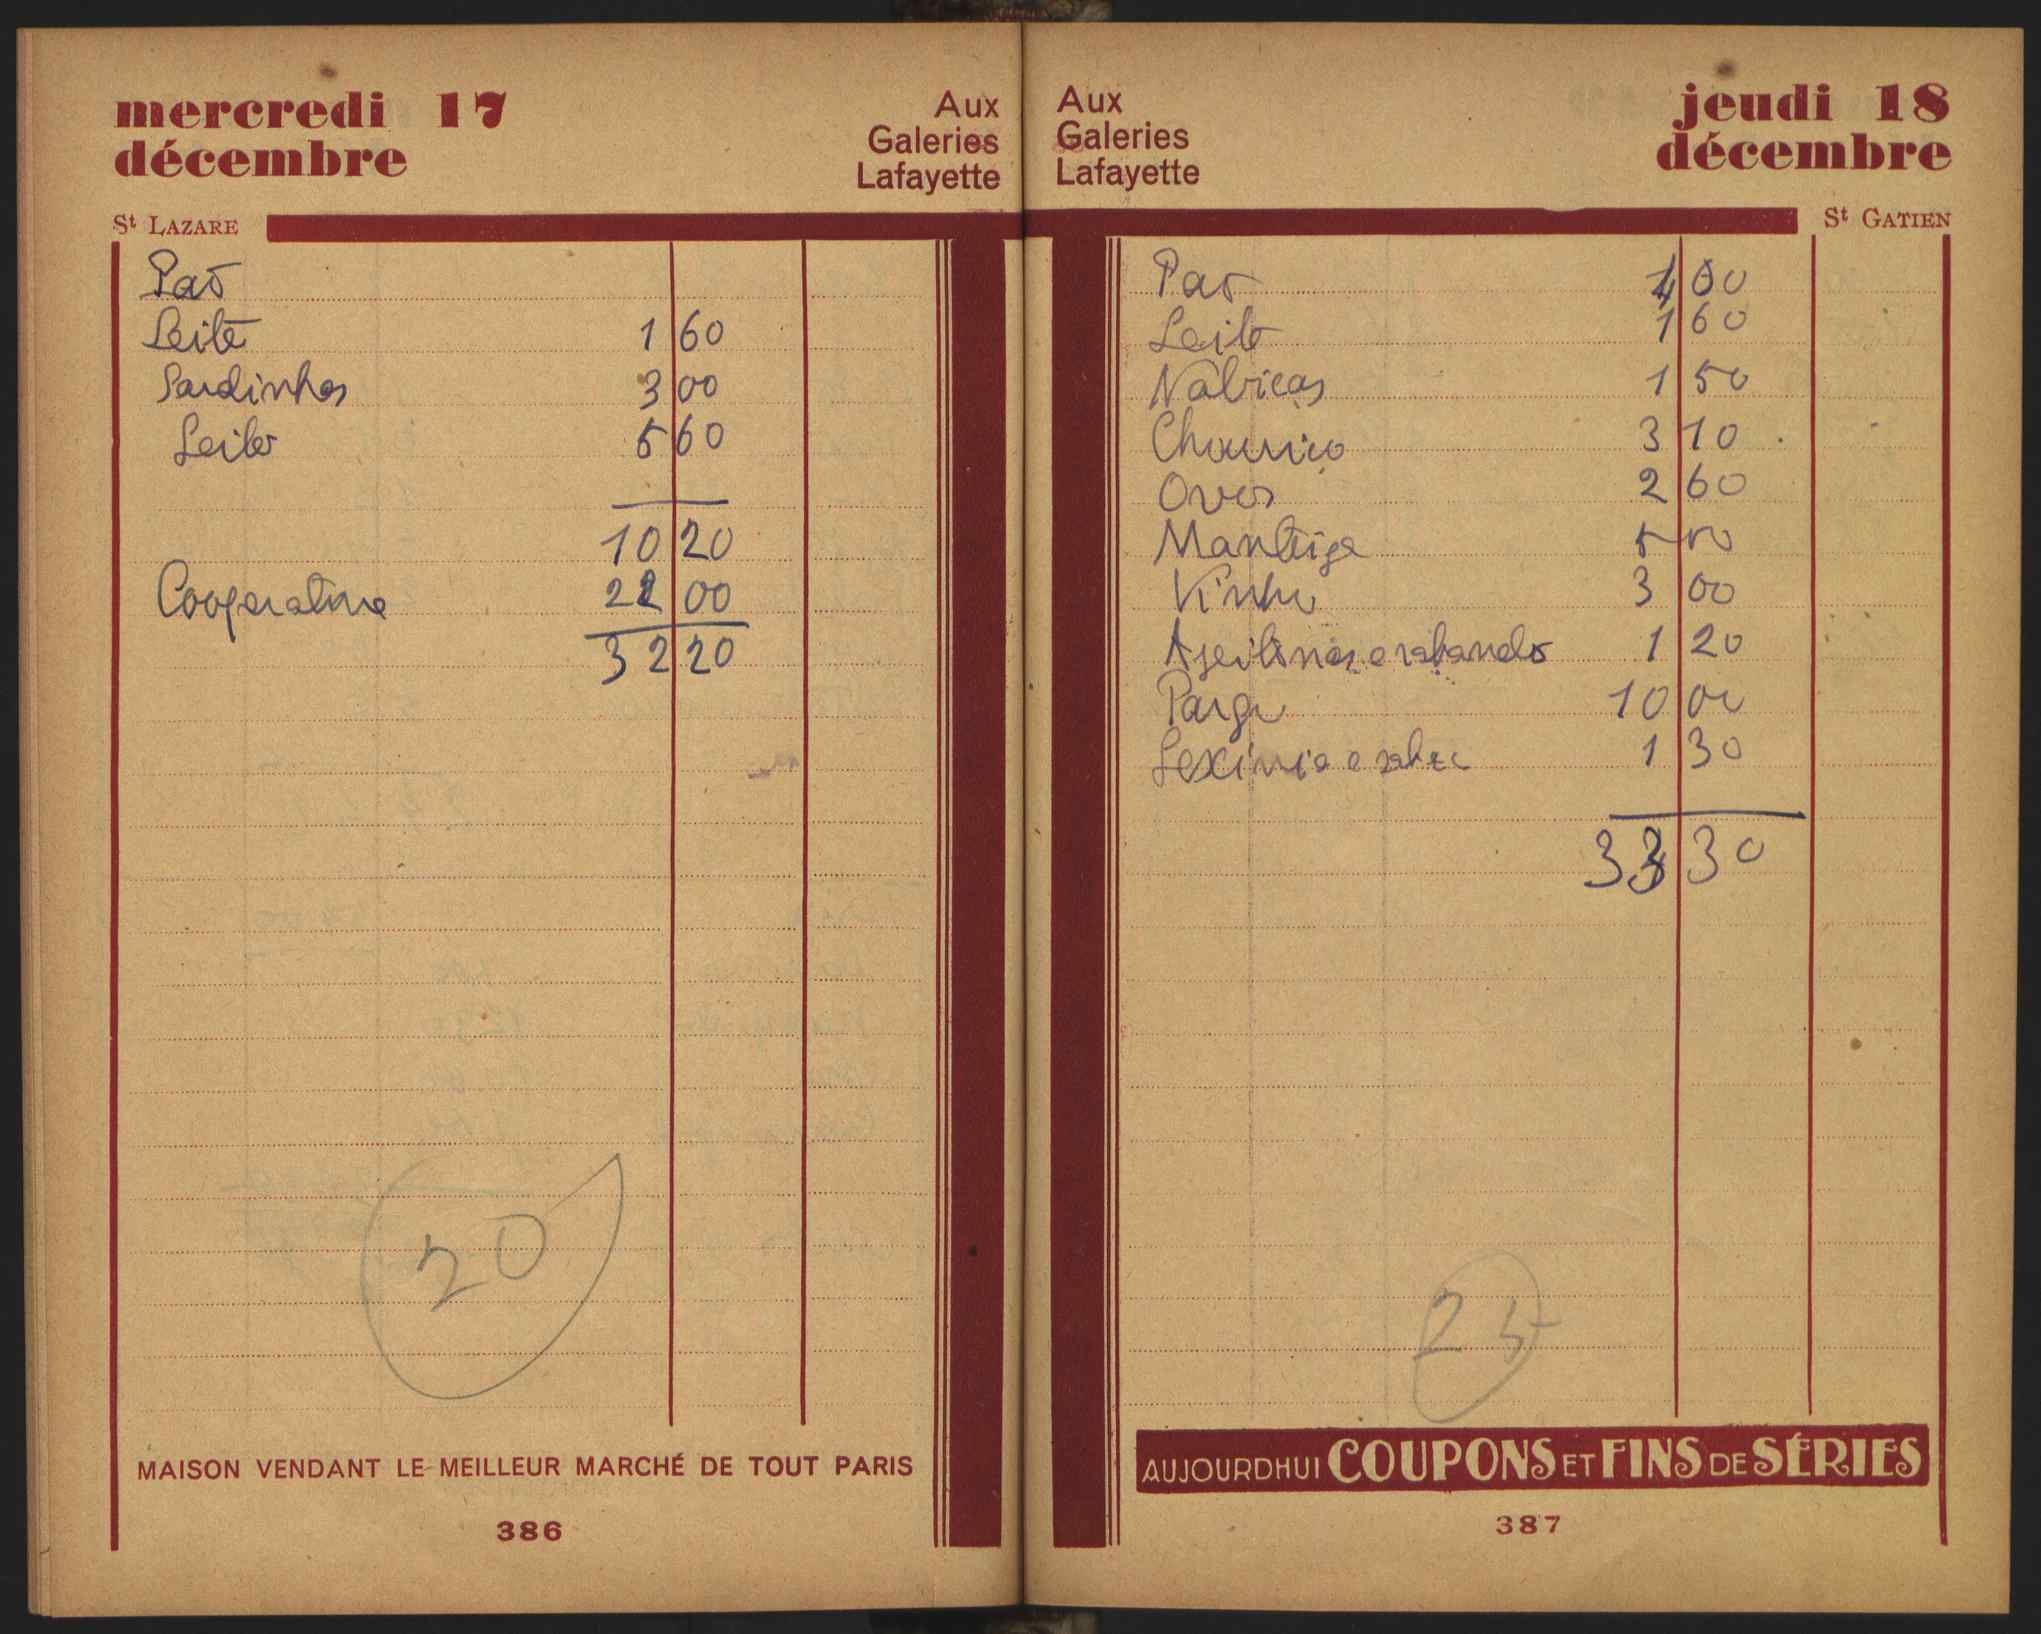 mercredi 17
décembre
Aux
Galeries
Lafayette
St LAZARE
Pão
Leite 1 60
Sardinhas 3 00
Leite 5 60
10 20
Cooperativa 22 00
32 20
20
MAISON VENDANT LE MEILLEUR MARCHÉ DE TOUT PARIS
386
Aux
Galeries
Lafayette
jeudi 18
décembre
St GATIEN
Pão 4 00
Leite 1 60
Nabiças 1 50
Chouriço 3 10
Ovos 2 60
Manteiga 5 00
Vinho 3 00
Azeitonas e rabanos 1 20
Pargo 10 00
Lexivia e 1 30
33 30
25
AUJOURDHUI COUPONS ET FINS DE SÉRIES
387